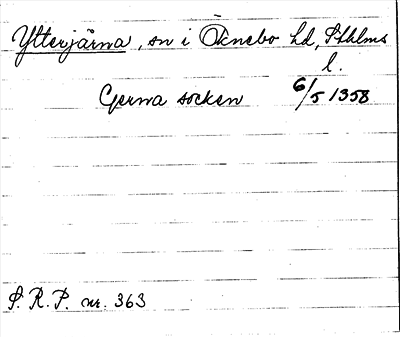 Ytterjärna, sn i Öknebo hd, Sthlms
l.
Gerna socken 6/5 1358
S. R. P. nr. 363